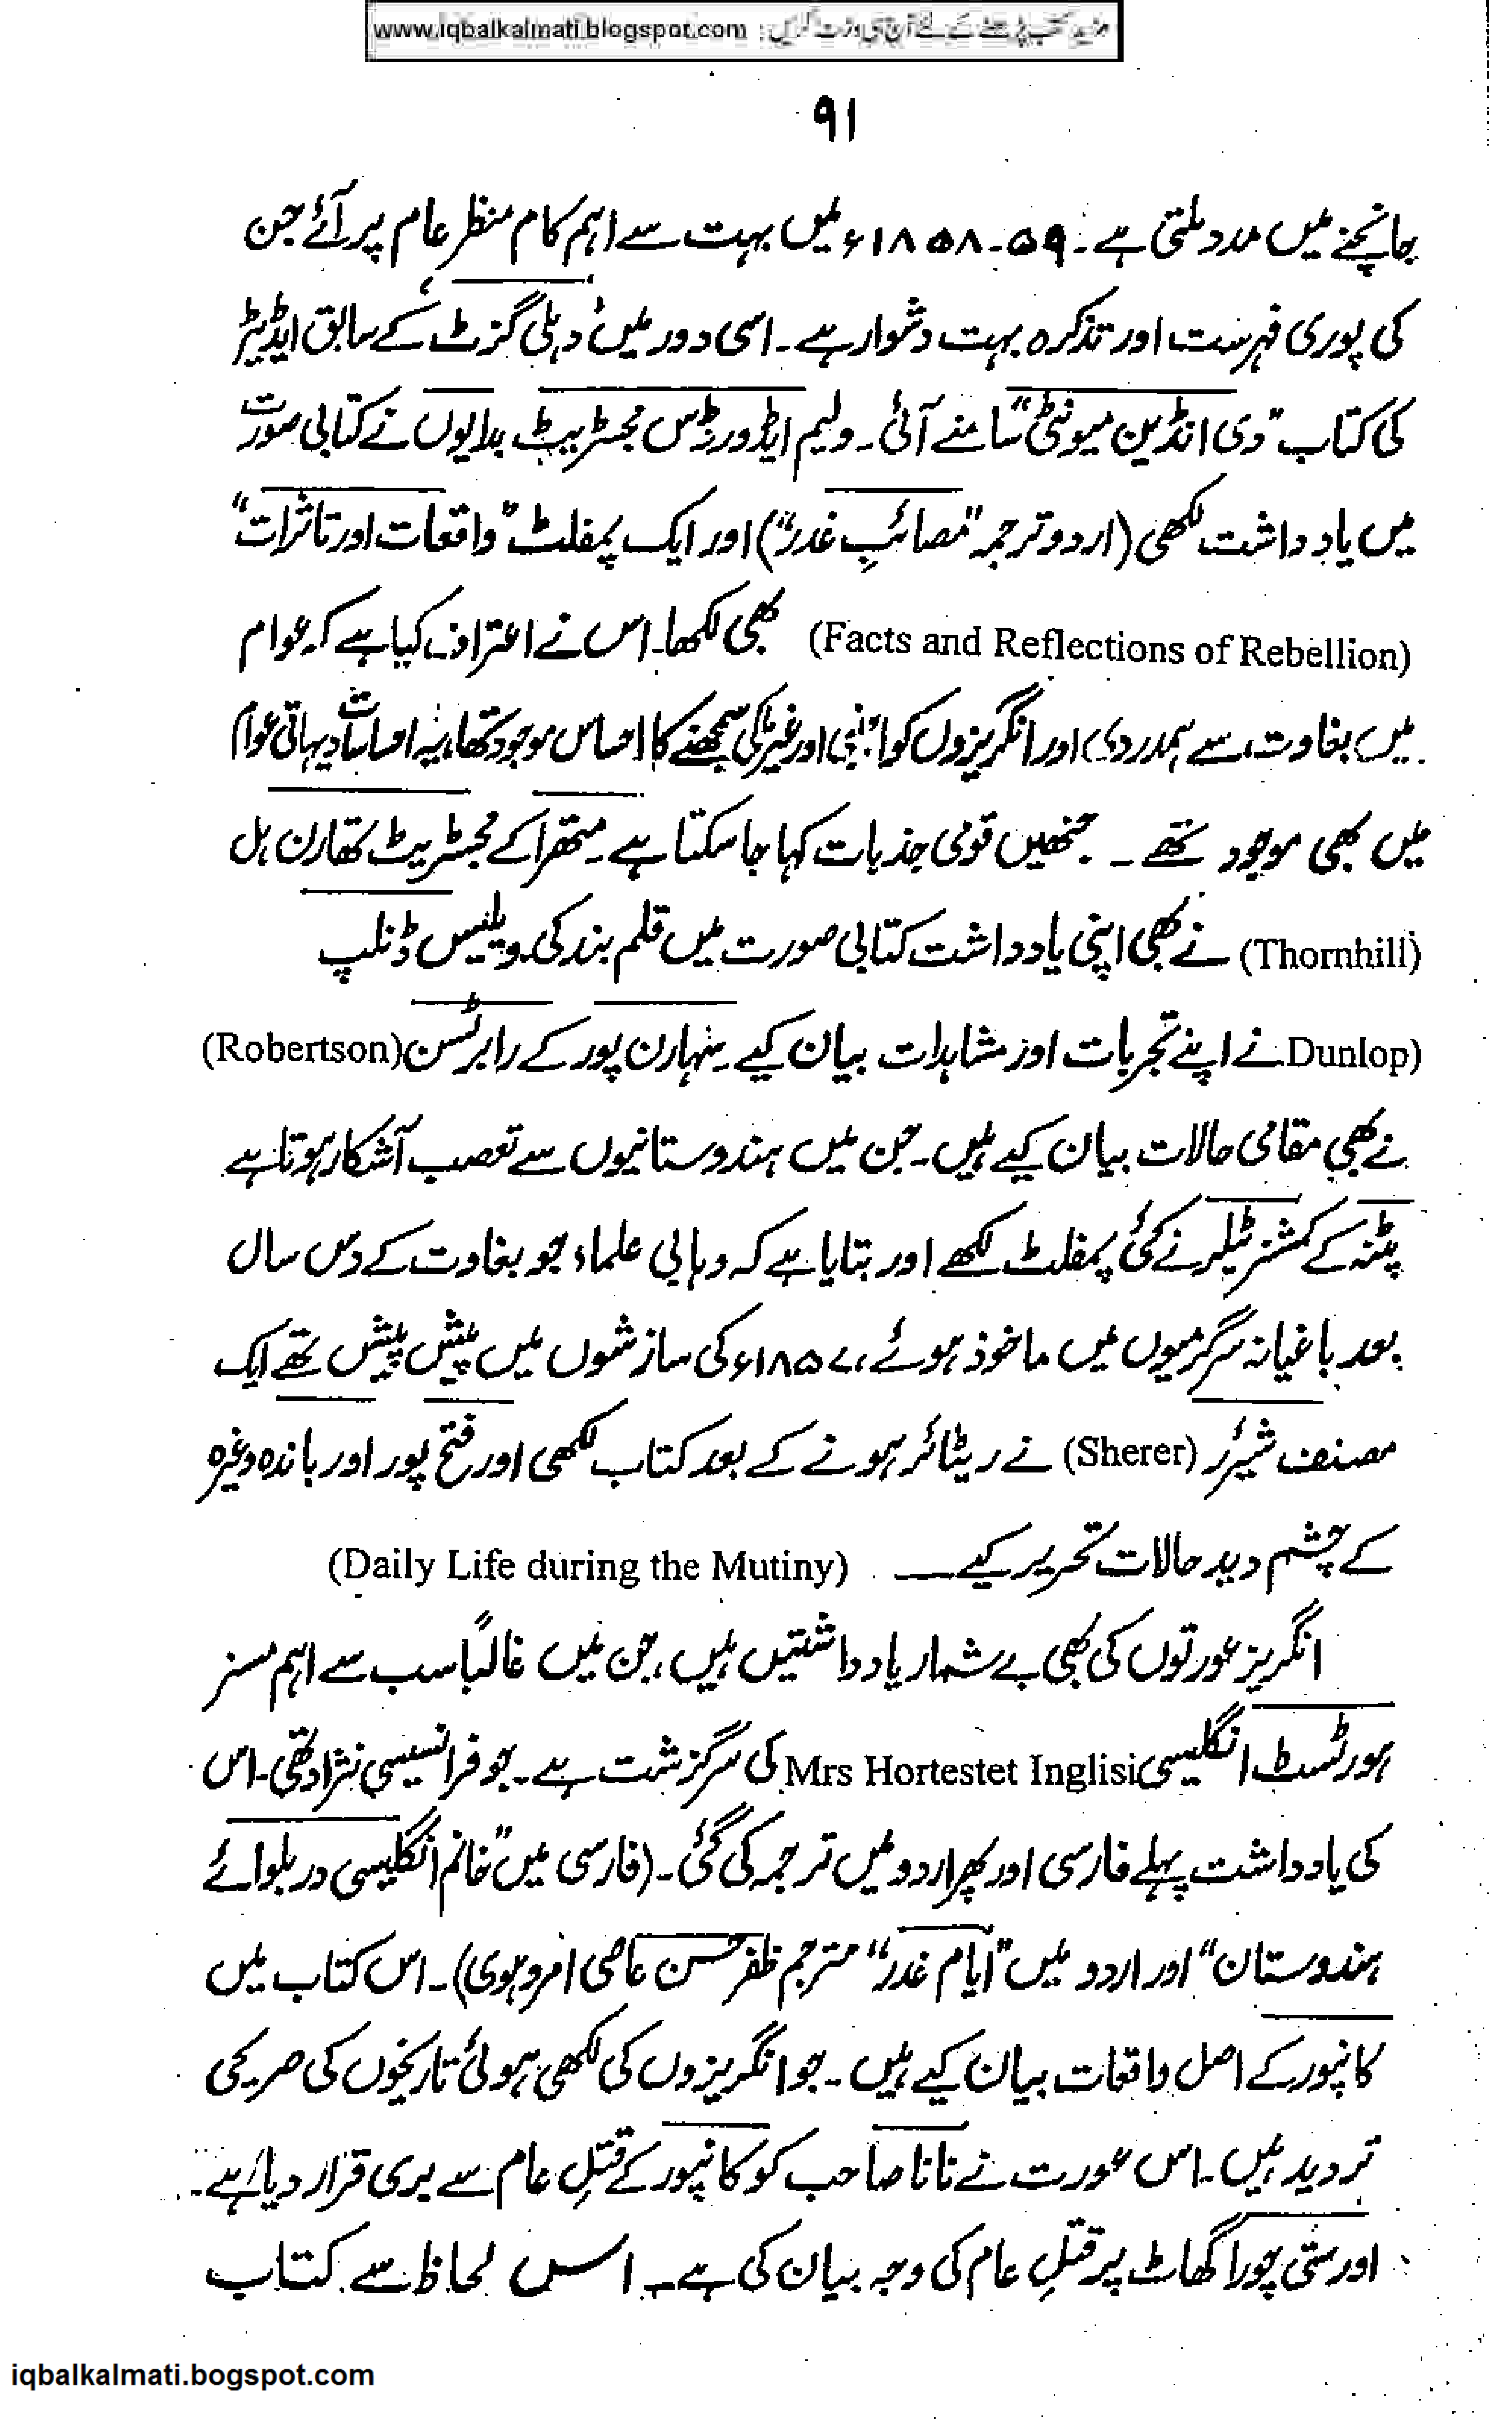 مزید کتب پڑھنے کے لئے آج ہی وزٹ کریں : www.iqbalkalmati.blogspot.com
۹۱
جانچنے میں مدد ملتی ہے۔ ۵۹۔۱۸۵۸ء میں بہت سے اہم کام منظر عام پر آئے جن
کی پوری فہرست اور تذکرہ بہت دشوار ہے۔ اسی دور میں ’دہلی گزٹ‘ کے سابق ایڈیٹر
کی کتاب ”دی انڈین میونٹی“ سامنے آئی۔ ولیم ایڈورڈس مجسٹریٹ بدایوں نے کتابی صورت
میں یادداشت لکھی (اردو ترجمہ ”مصائبِ غدر“) اور ایک پمفلٹ ”واقعات اور تاثرات“
(Facts and Reflections of Rebellion) بھی لکھا۔ اس نے اعتراف کیا ہے کہ عوام
میں بغاوت سے ہمدردی اور انگریزوں کو اجنبی اور غیر ملکی سمجھنے کا احساس موجود تھا، یہ احساسات دیہاتی عوام
میں بھی موجود تھے۔ جنھیں قومی جذبات کہا جا سکتا ہے۔ متھرا کے مجسٹریٹ تھارن ہل
(Thornhill) نے بھی اپنی یادداشت کتابی صورت میں قلم بند کی۔ ویلیس ڈنلپ
Dunlop) نے اپنے تجربات اور مشاہدات بیان کیے۔ سہارن پور کے رابرٹسن (Robertson)
نے بھی مقامی حالات بیان کیے ہیں۔ جن میں ہندوستانیوں سے تعصب آشکار ہوتا ہے
پٹنہ کے کمشنر ٹیلر نے کئی پمفلٹ لکھے اور بتایا ہے کہ وہابی علماء جو بغاوت کے دس سال
بعد باغیانہ سرگرمیوں میں ماخوذ ہوئے، ۱۸۵۷ء کی سازشوں میں پیش پیش تھے ایک
مصنف شیرر (Sherer) نے ریٹائر ہونے کے بعد کتاب لکھی اور فتح پور اور باندہ وغیرہ
کے چشم دید حالات تحریر کیے ۔ (Daily Life during the Mutiny)
انگریز عورتوں کی بھی بے شمار یادداشتیں ہیں، جن میں غالباً سب سے اہم مسز
ہورٹسٹ انگلیسی Mrs Hortestet Inglisi کی سرگزشت ہے۔ جو فرانسیسی نژاد تھی۔ اس
کی یادداشت پہلے فارسی اور پھر اردو میں ترجمہ کی گئی۔ (فارسی میں ”خانم انگلیسی در بلوائے
ہندوستان“ اور اردو میں ”ایام غدر“ مترجم ظفر حسن عاصی امروہوی)۔ اس کتاب میں
کانپور کے اصل واقعات بیان کیے ہیں۔ جو انگریزوں کی لکھی ہوئی تاریخوں کی صریحی
تردید ہیں۔ اس عورت نے نانا صاحب کو کانپور کے قتلِ عام سے بری قرار دیا ہے۔
اور ستی چورا گھاٹ پر قتلِ عام کی وجہ بیان کی ہے۔ اس لحاظ سے کتاب
iqbalkalmati.bogspot.com